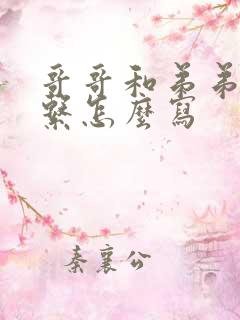 哥哥和弟弟
繫怎麼寫
秦襄公